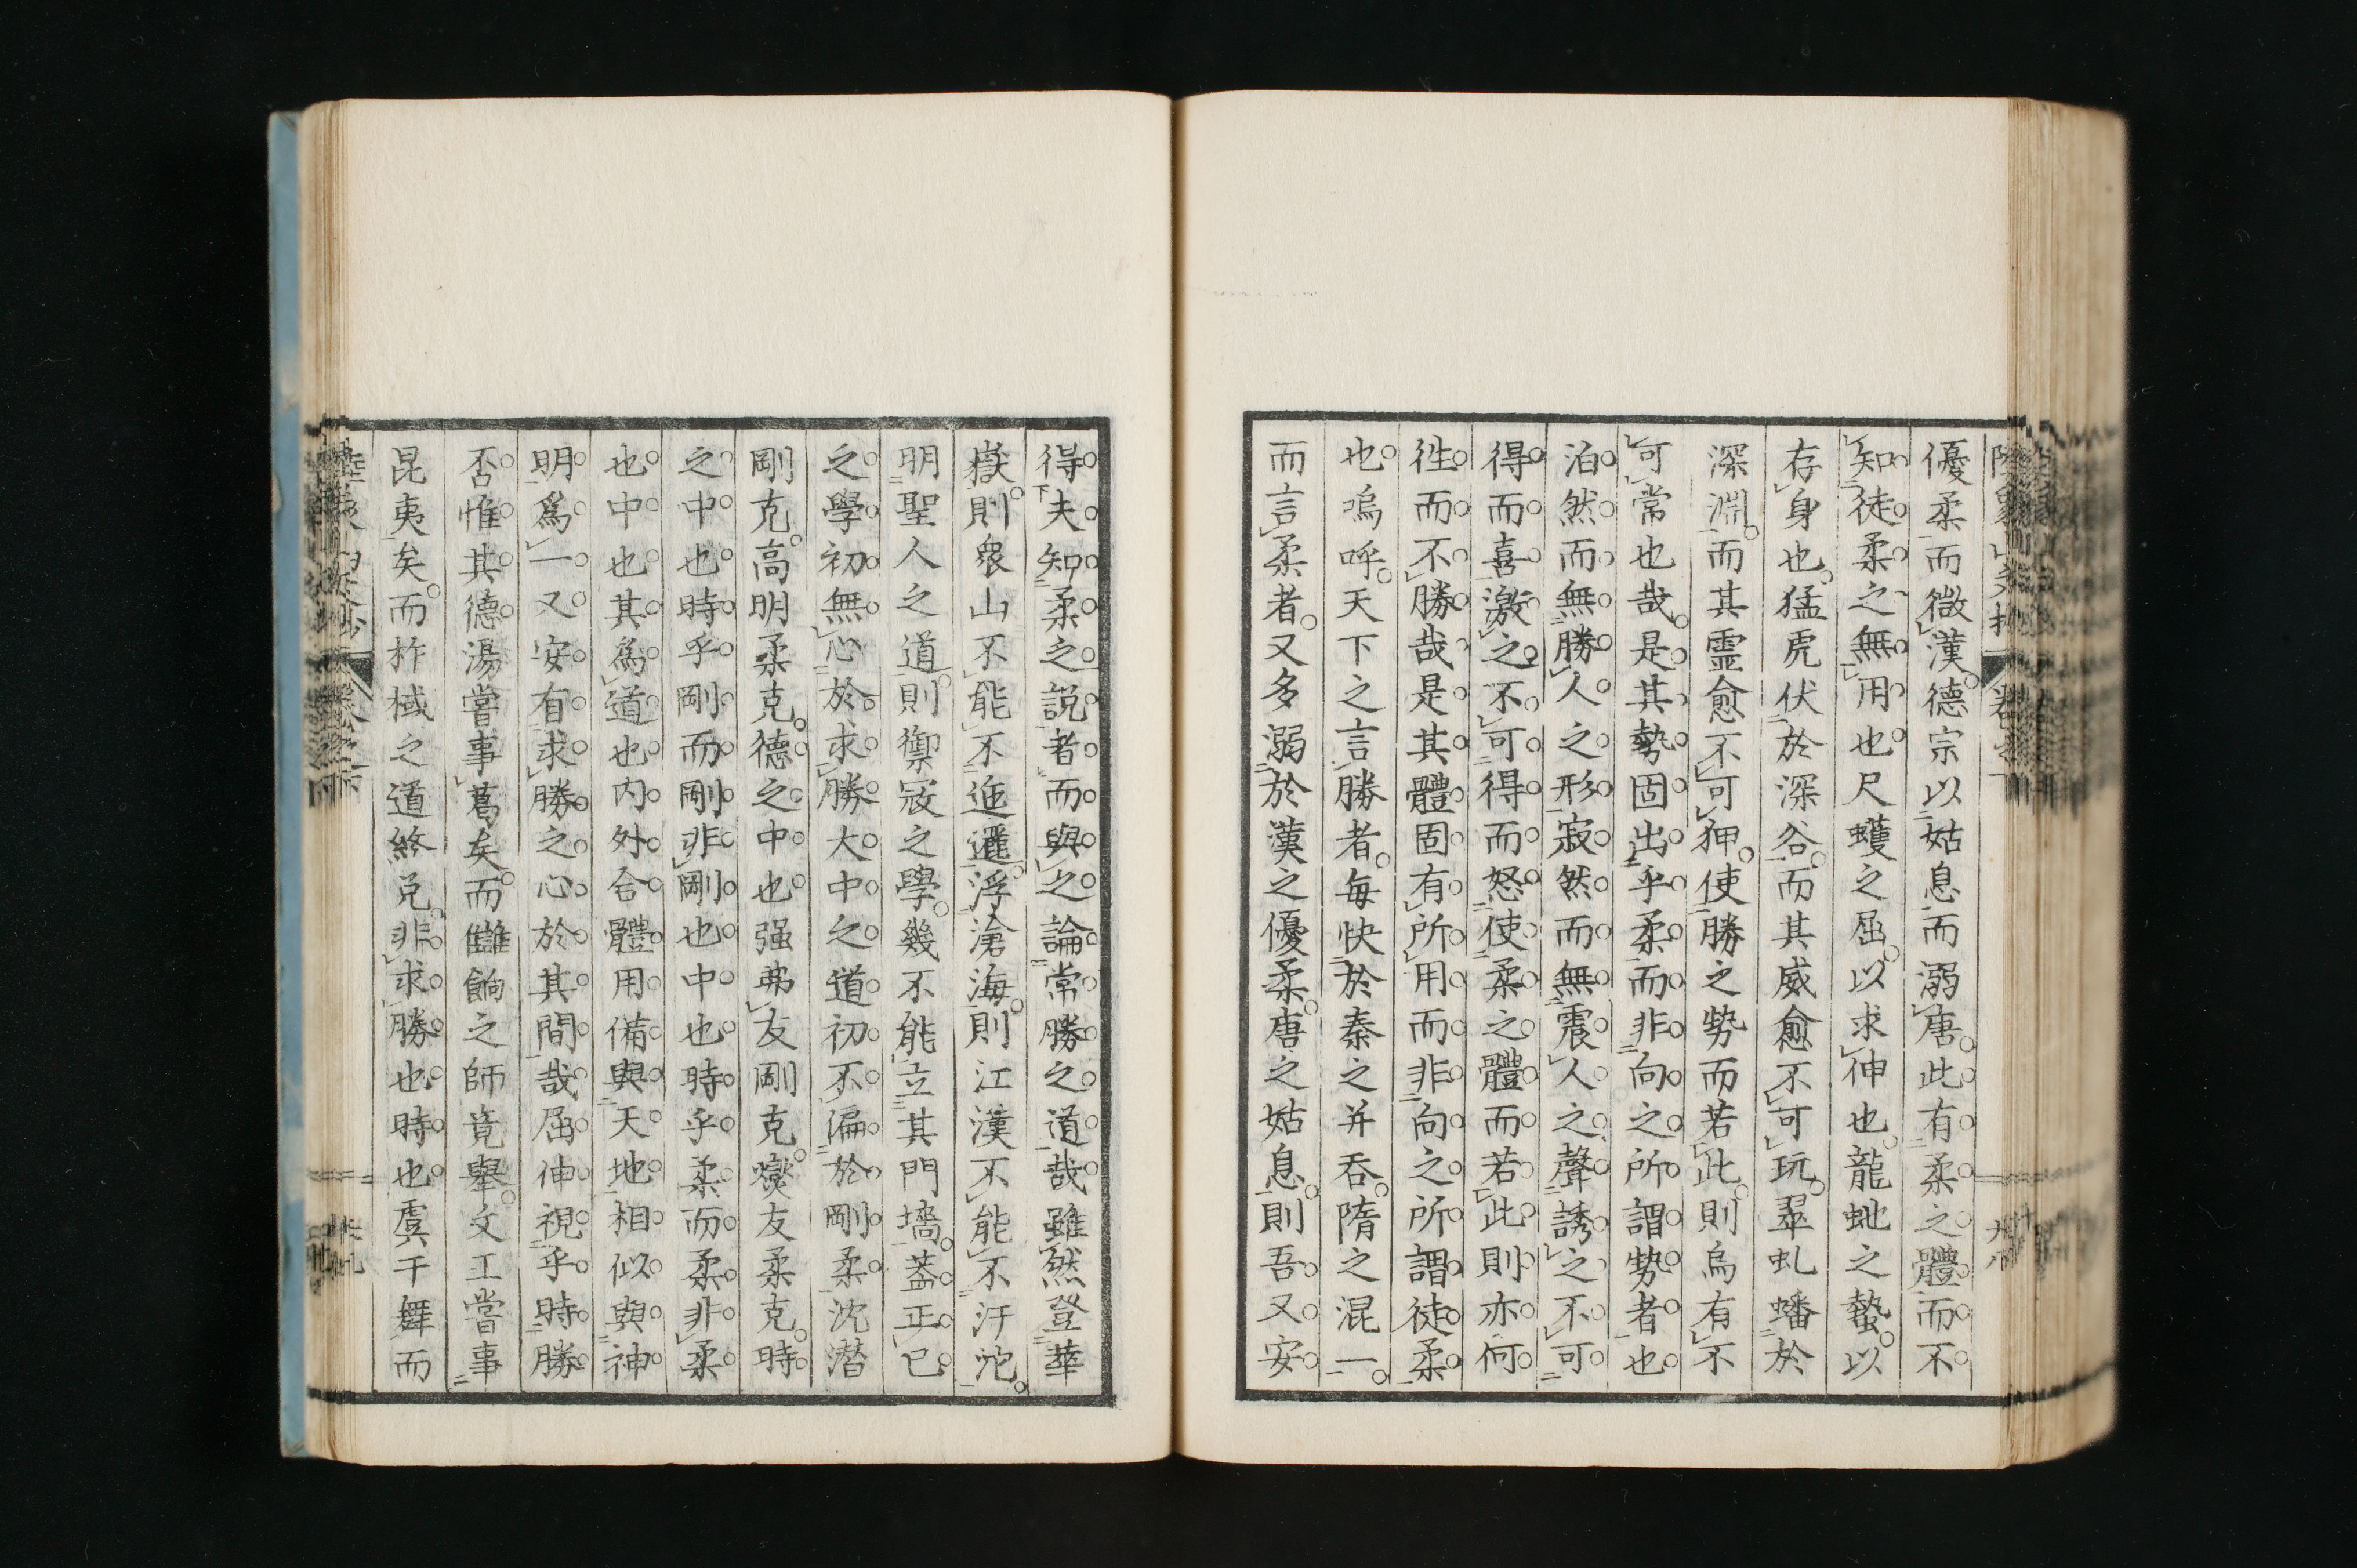 優柔而微漢德宗以姑息而溺唐此有柔之體而不
知徒柔之無用也尺蠖之屈以求伸也龍虵之蟄以
存身也猛虎伏於深谷而其威愈不可玩翠虬蟠於
深淵而其霊愈不可狎使勝之勢而若此則烏有不
可常也哉是其勢固出乎柔而非向之所謂勢者也
泊然而無勝人之形寂然而無震人之聲誘之不可
得而喜激之不可得而怒使柔之體而若此則亦何
徃而不勝哉是其體固有所用而非向之所謂徒柔
也嗚呼天下之言勝者每快於秦之并吞隋之混一
而言柔者又多溺於漢之優柔唐之姑息則吾又安
得夫知柔之説者而與之論常勝之道哉雖然登華
嶽則衆山不能不迤邐浮滄海則江漢不能不汙沱
明聖人之道則禦寇之學幾不能立其門墻蓋正已
之學初無心於求勝大中之道初不偏於剛柔沈潛
剛克高明柔克德之中也强弗友剛克燮友柔克時
之中也時乎剛而剛非剛也中也時乎柔而柔非柔
也中也其爲道也内外合體用備與天地相似與神
明爲一又安有求勝之心於其間哉屈伸視乎時勝
否惟其德湯嘗事葛矣而讎餉之師竟舉文王嘗事
昆夷矣而柞棫之道終兌非求勝也時也虞干舞而